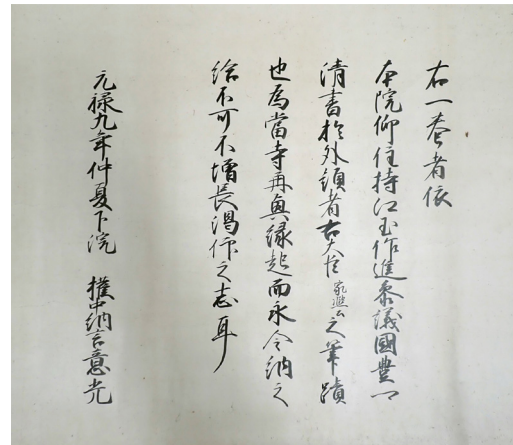 右一巻者依
本院仰住持江玉作進参議國豊
清書於外題者右大臣家熈公之筆蹟
也為當寺再興縁起而永令納之
給不可不増長渇仰之志耳
元禄九年仲夏下浣 権中納言意光